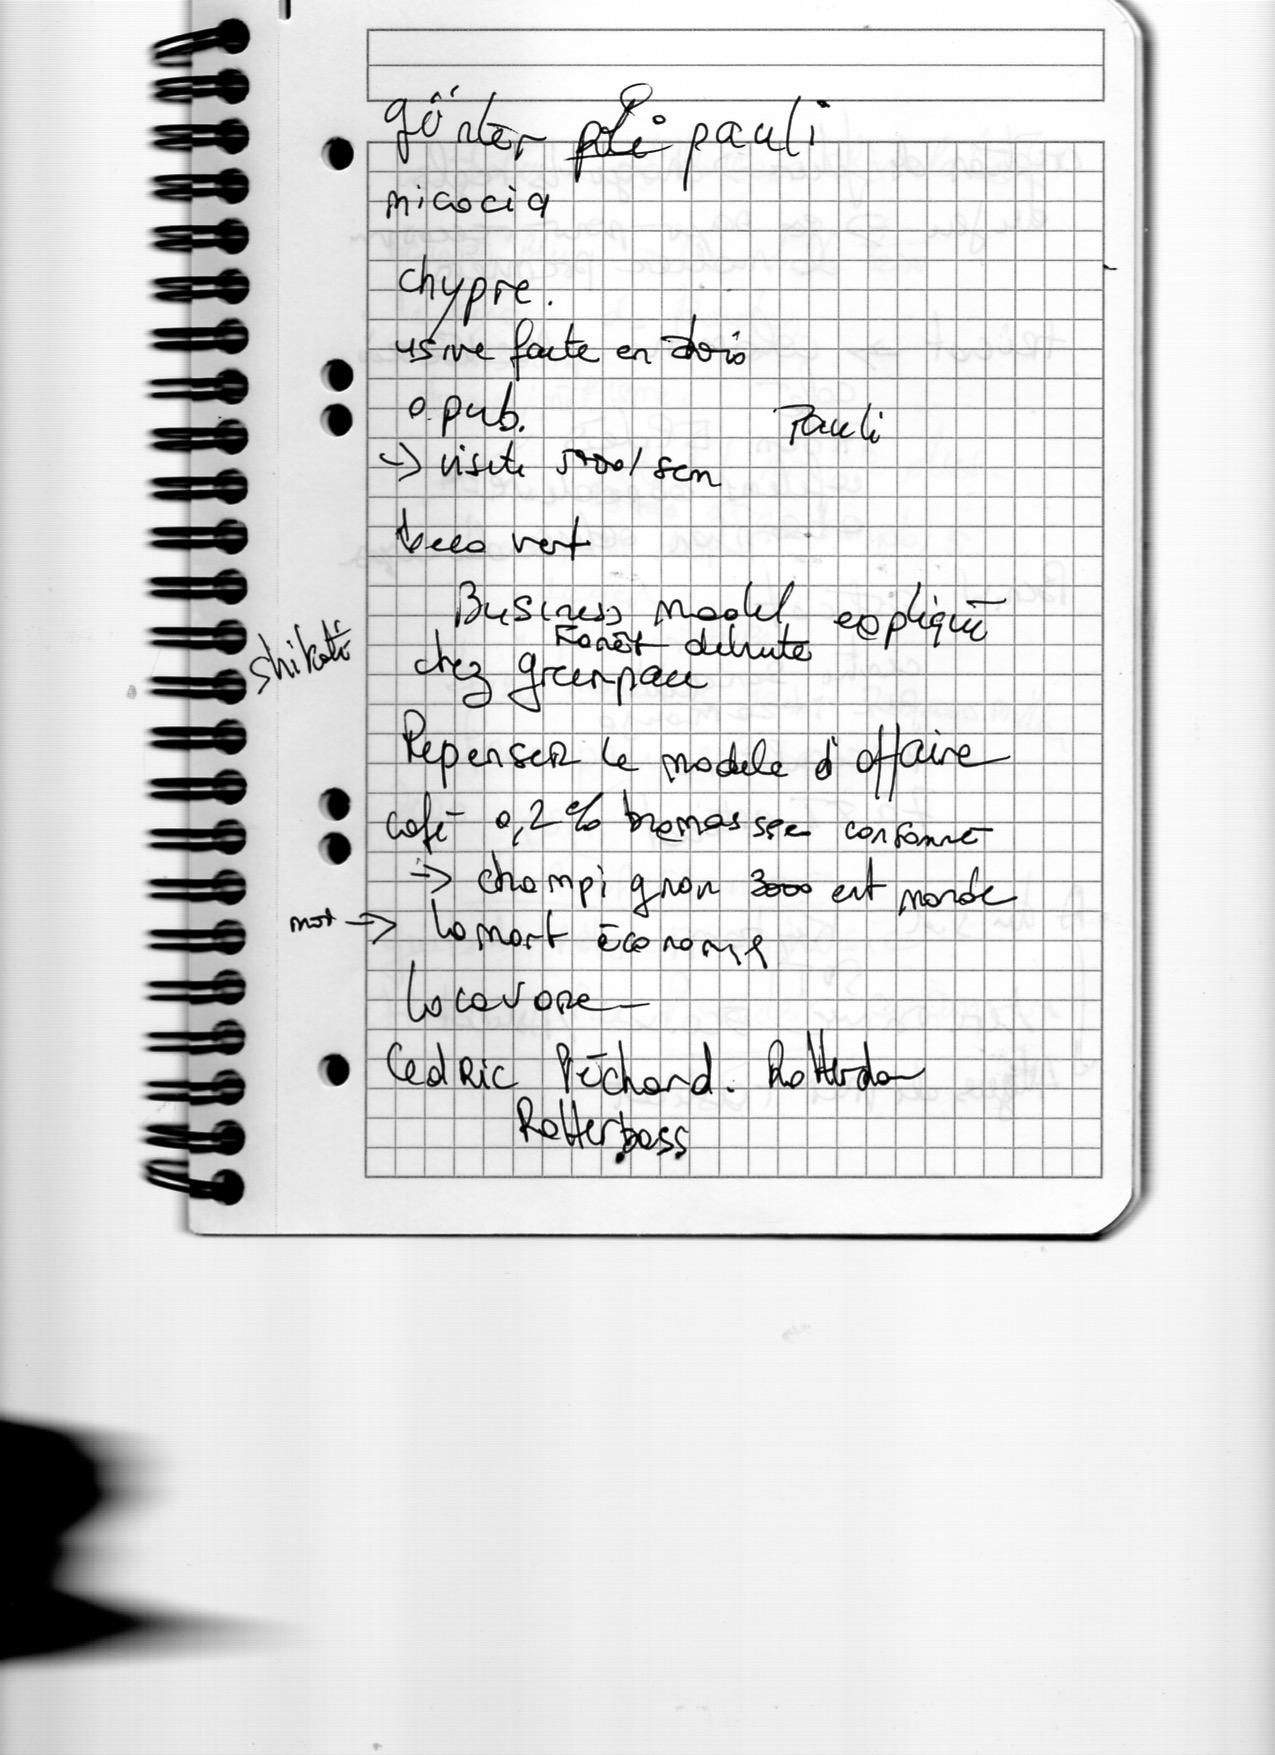 günter pauli
nicocia
chypre.
usine faite en bois
o.pub.
Pauli
-> visite 5000/sem
vert
Business model expliqué
Forêt détruite
shikaté
chez greenpeace
Repenser le modele d'affaire
café 0,2% biomasse consommé
-> champignon 3000 ent monde
mot -> la mort économie
Locavore
Cedric Péchard. Rotterdam
Rotterbass